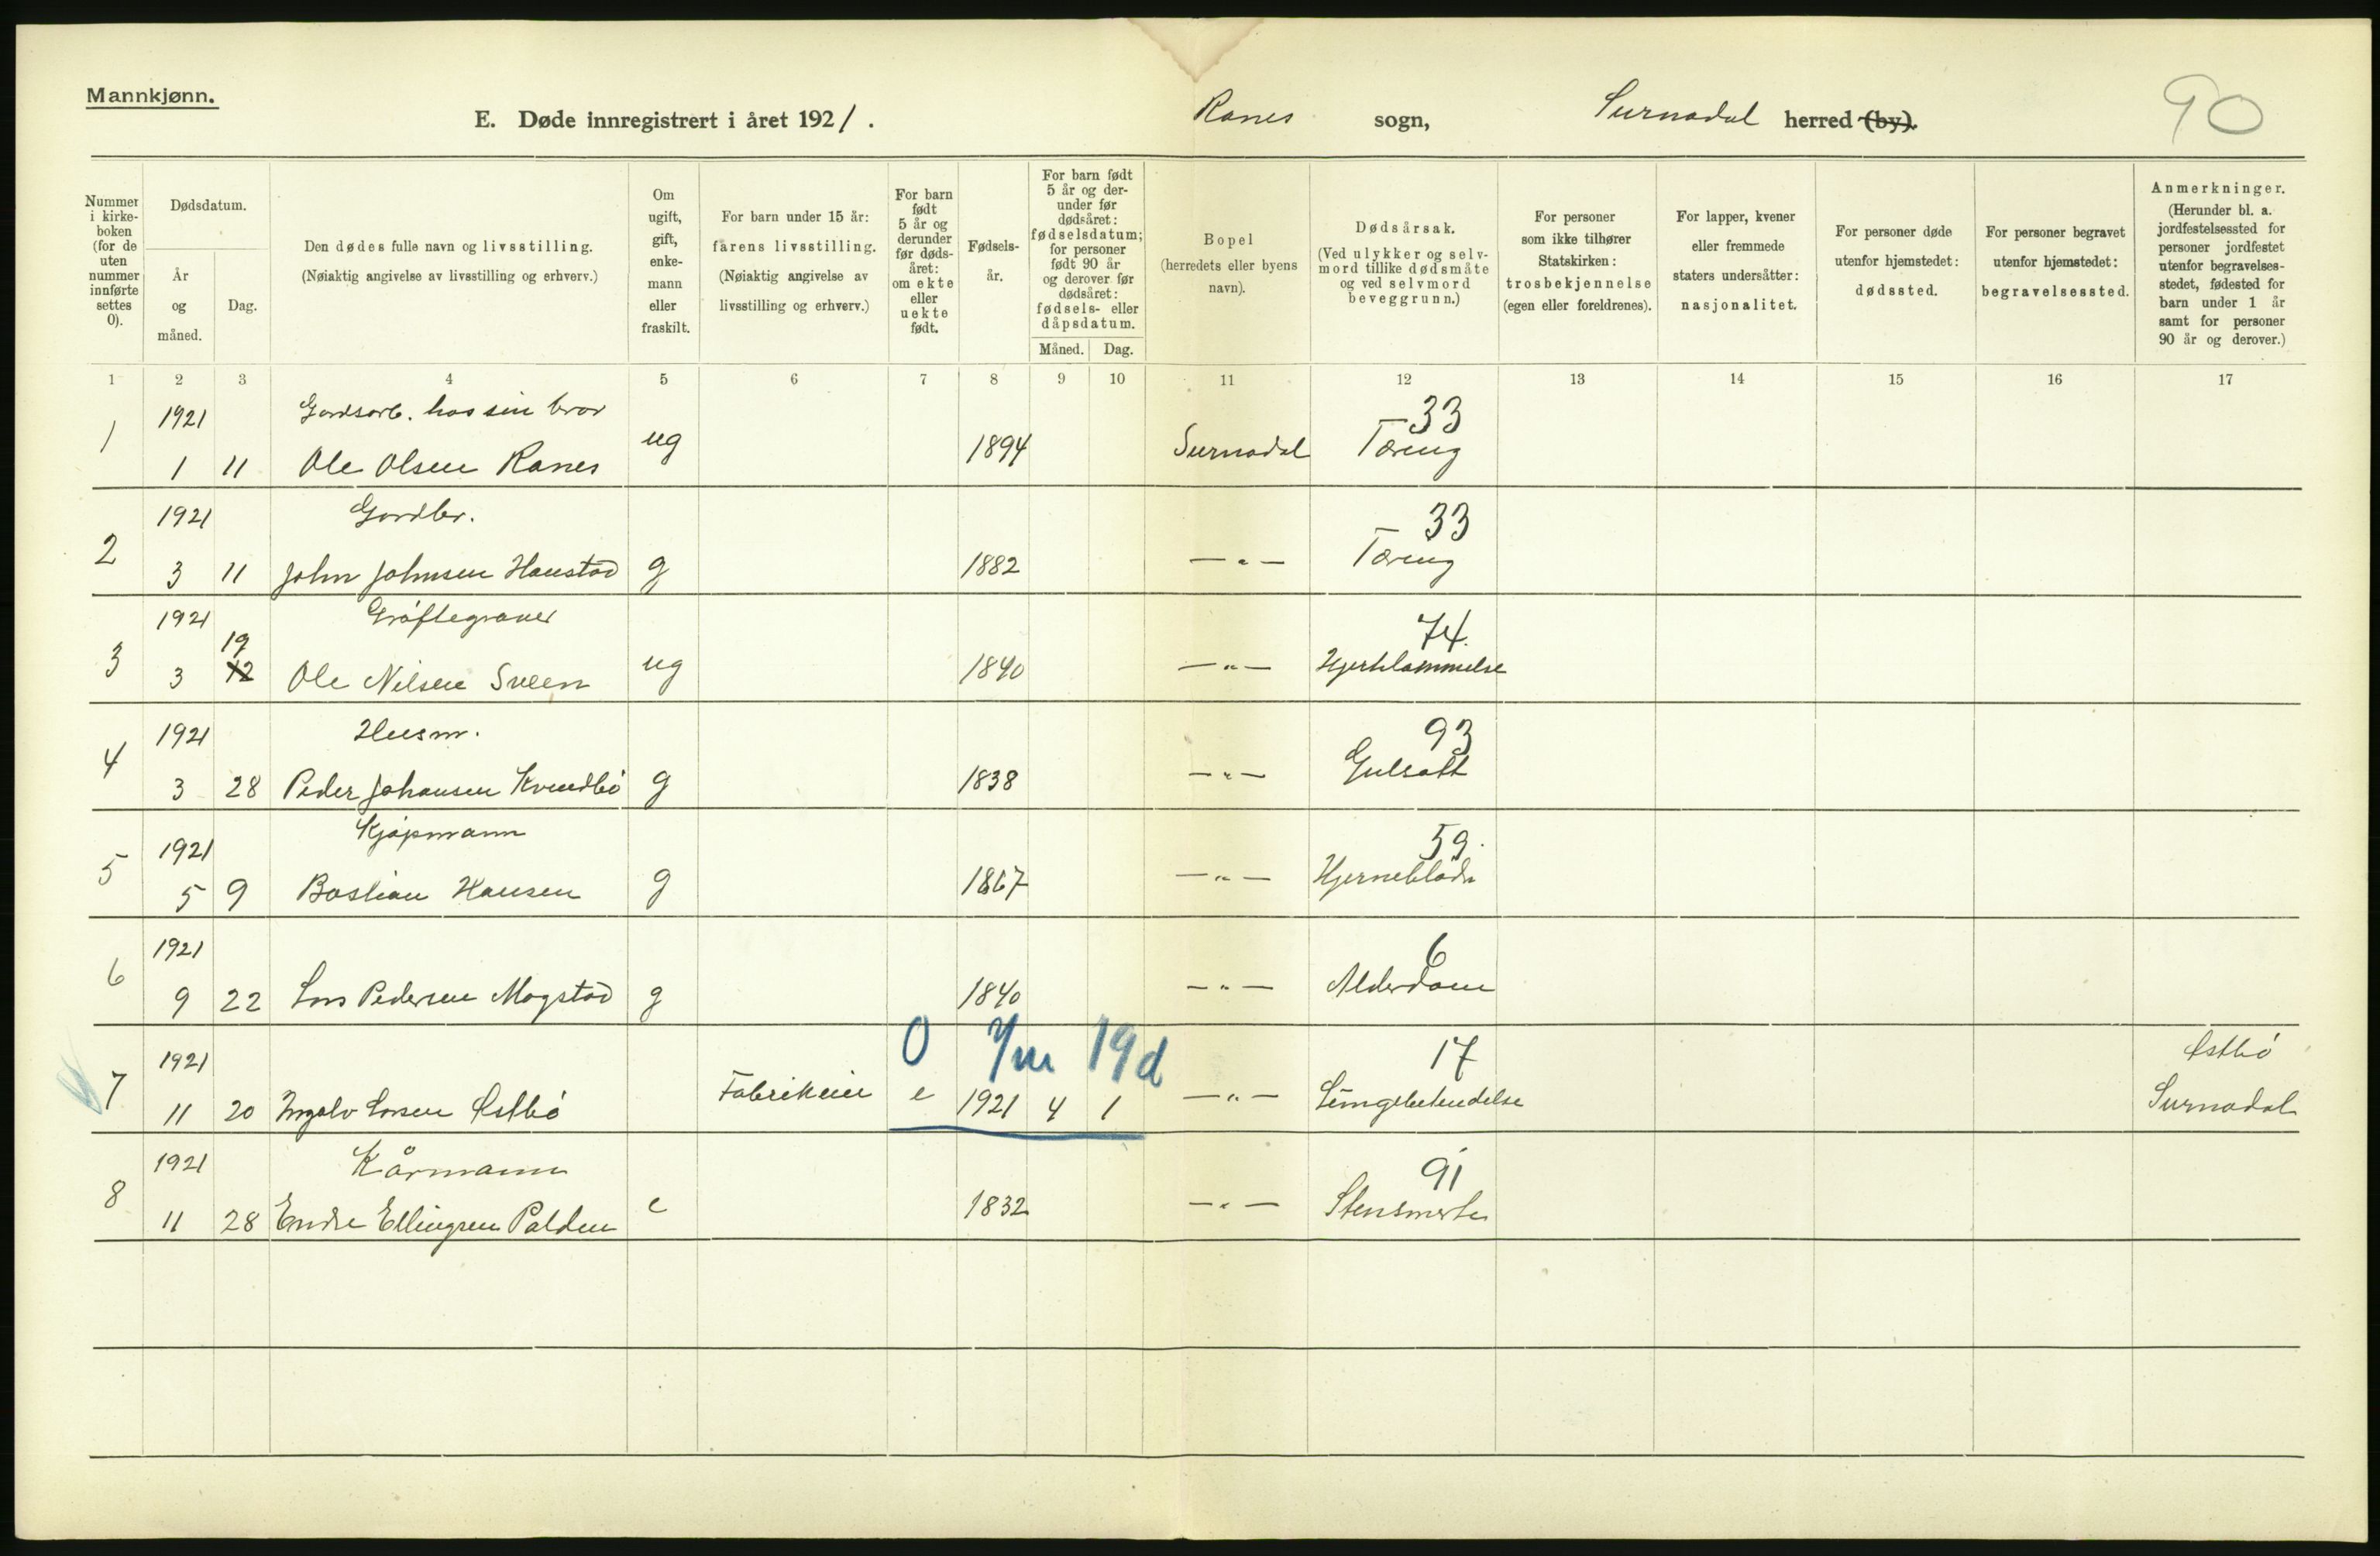 Mannkjønn.
E. Døde innregistrert i året 1921.
Ranes sogn,
Surnadal herred (by).
90
Nummer i kirkeboken (for de uten nummer innførte settes 0).
Dødsdatum.
År og måned.
Dag.
Den dødes fulle navn og livsstilling.
(Nøiaktig angivelse av livsstilling og erhverv.)
Om ugift, gift, enkemann eller fraskilt.
For barn under 15 år:
farens livsstilling.
(Nøiaktig angivelse av livsstilling og erhverv.)
For barn født 5 år og derunder før dødsåret: om ekte eller uekte født.
Fødselsår.
For barn født 5 år og derunder før dødsåret: fødselsdatum; for personer født 90 år og derover før dødsåret: fødsels- eller dåpsdatum.
Måned. Dag.
Bopel
(herredets eller byens navn).
Dødsårsak.
(Ved ulykker og selvmord tillike dødsmåte og ved selvmord beveggrunn.)
For personer som ikke tilhører Statskirken:
trosbekjennelse
(egen eller foreldrenes).
For lapper, kvener eller fremmede staters undersåtter:
nasjonalitet.
For personer døde utenfor hjemstedet:
dødssted.
For personer begravet utenfor hjemstedet:
begravelsessted.
Anmerkninger.
(Herunder bl. a. jordfestelsessted for personer jordfestet utenfor begravelsesstedet, fødested for barn under 1 år samt for personer 90 år og derover.)
1 2 3 4 5 6 7 8 9 10 11 12 13 14 15 16 17
1921 Gardsarb. hos sin bror 33
1 1 11 Ole Olsen Ranes ug 1894 Surnadal Tæring
1921 Gardbr. 33
2 3 11 John Johnsen Haustad g 1882 — " — Tæring
1921 Grøftegraver 74.
19
3 3 12 Ole Nilsen Sveen ug 1840 — " — Hjertelammelse
1921 Husm. 93
4 3 28 Peder Johansen Kvendbø g 1838 — " — Gulsott
1921 Kjøpmann 59.
5 5 9 Bastian Hansen g 1867 — " — Hjerneblødn
1921 6
6 9 22 Lars Pedersen Mogstad g 1840 — " — Alderdom
0 7m 19d
1921 17 Østbø
7 11 20 Ingolv Larsen Østbø Fabrikeier e 1921 4 1 — " — Lungebetendelse Surnadal
1921 Kårmann 91
8 11 28 Endre Ellingsen Polden e 1832 — " — Stensmerter